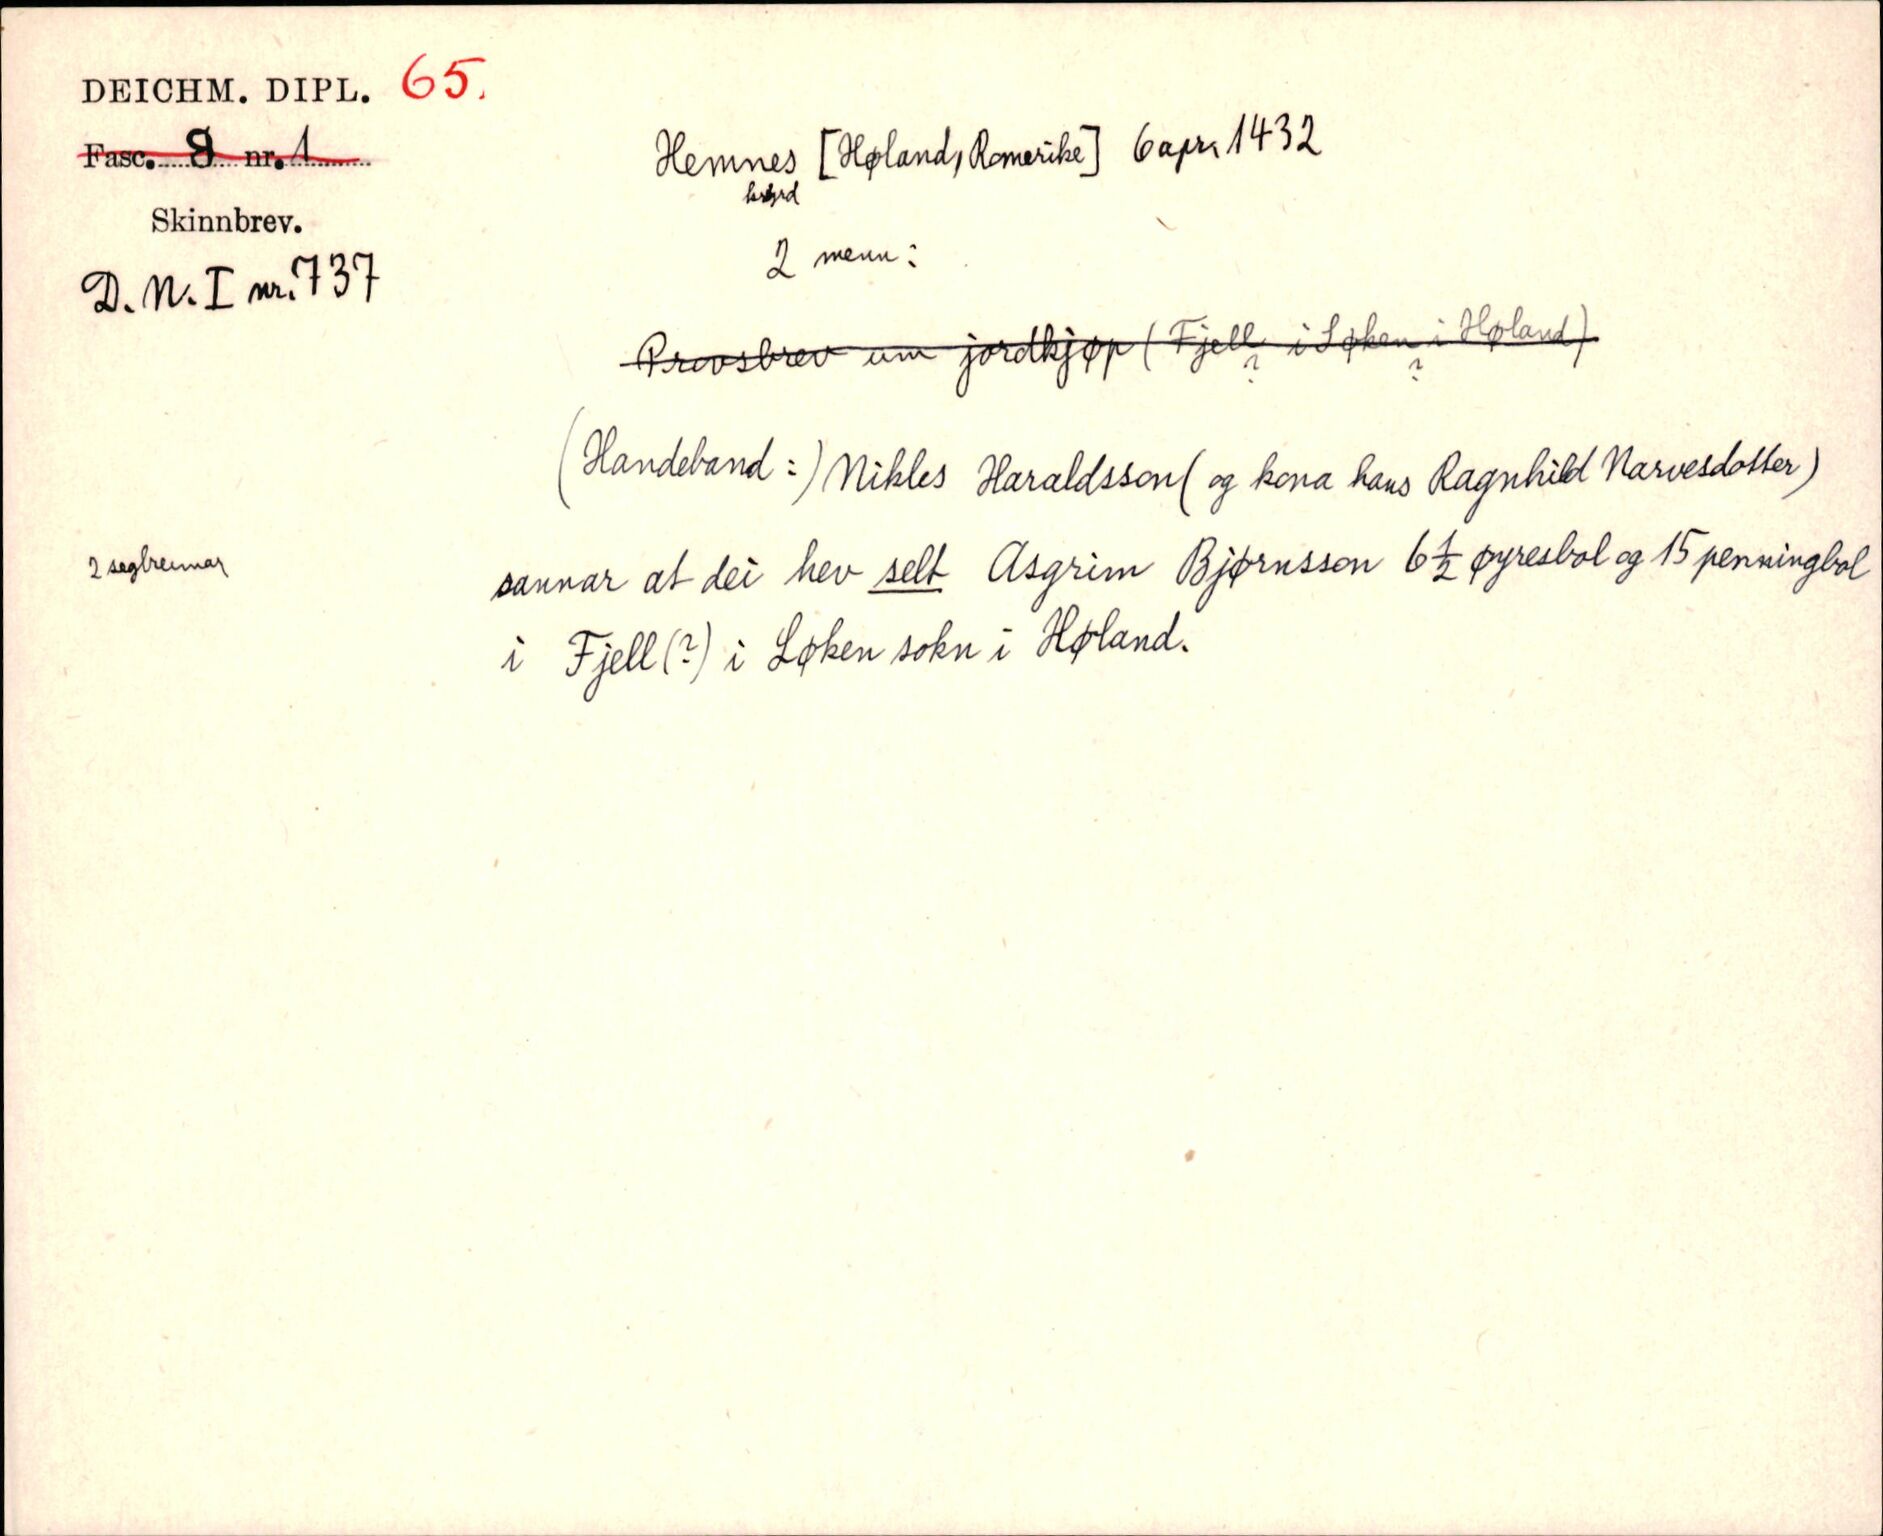 DEICHM. DIPL. 65.
Fasc. 8 nr. 1
Skinnbrev.
D. N. I nr. 737
Hemnes [Høland, Romerike] 6 apr. 1432
2 menn:
Provsbrev um jordkjøp (Fjell ? i Løken ? i Høland)
(Handeband:) Nikles Haraldsson (og kona hans Ragnhild Narvesdotter)
2 segbreimar
sannar at dei hev selt Asgrim Bjørnsson 6 1/2 øyresbol og 15 penningbol
i Fjell (?) i Løken sokn i Høland.